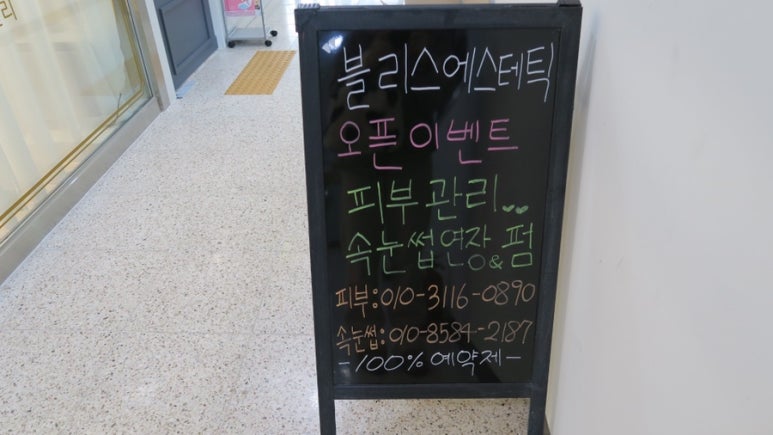 블리스에스테틱
오픈이벤트
피부관리..
속눈썹연장&펌
피부:010-3116-0890
속눈썹:010-8584-2187
-100% 예약제-
리